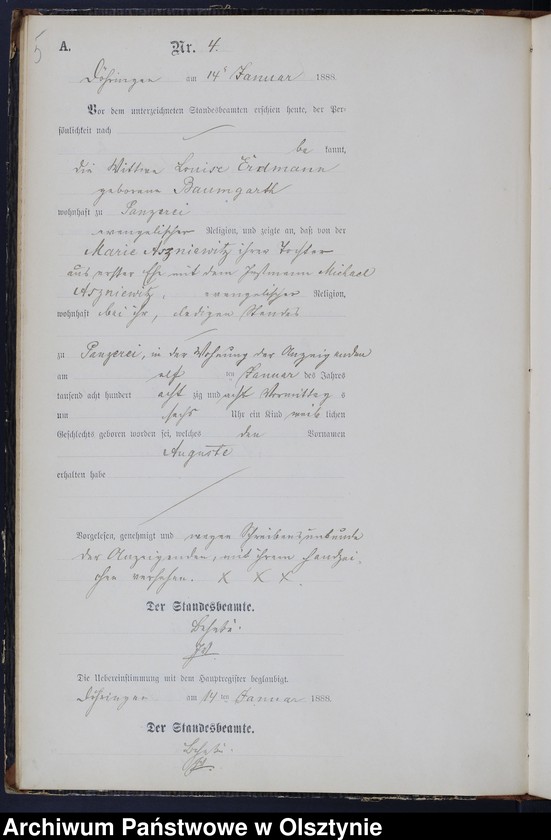 5
A. Nr. 4.
Döhringen am 14ᵗ Januar 1888.
Vor dem unterzeichneten Standesbeamten erschien heute, der Per-
sönlichkeit nach
be kannt,
die Wittwe Louise Erdmann
geborene Baumgarth
wohnhaft zu Panzerei
evangelischer Religion, und zeigte an, daß von der
Marie Aszniewitz ihrer Tochter
aus erster Ehe mit dem Instmann Michael
Aszniewitz, evangelischer Religion,
wohnhaft bei ihr, ledigen Standes
zu Panzerei, in der Wohnung der Anzeigenden
am elf ten Januar des Jahres
tausend acht hundert acht zig und acht Vormittag s
um sechs Uhr ein Kind weib lichen
Geschlechts geboren worden sei, welches den Vornamen
Auguste
erhalten habe
Vorgelesen, genehmigt und wegen Schreibensunkunde
der Anzeigenden, mit ihrem Handzei-
chen versehen. X X X
Der Standesbeamte.
Die Uebereinstimmung mit dem Hauptregister beglaubigt.
Döhringen am 14 ten Januar 1888.
Der Standesbeamte.
Archiwum Państwowe w Olsztynie